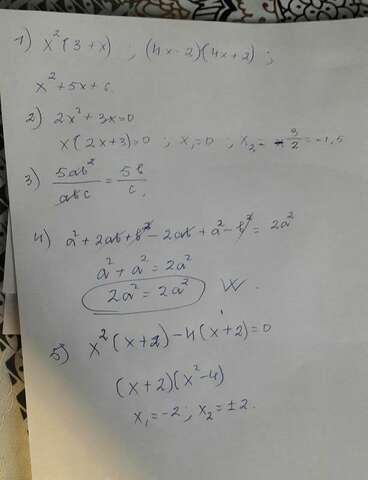 1) x²(3+x) ; (4x-2)(4x+2) ;
x²+5x+6.
2) 2x²+3x=0
x(2x+3)=0 ; x₁=0 ; x₂=-3/2=-1,5
3) 5ab²/abc = 5b/c.
4) a²+2ab+b²-2ab+a²-b²=2a²
a²+a²=2a²
2a²=2a² W.
5) x²(x+2)-4(x+2)=0
(x+2)(x²-4)
x₁=-2; x₂=±2.